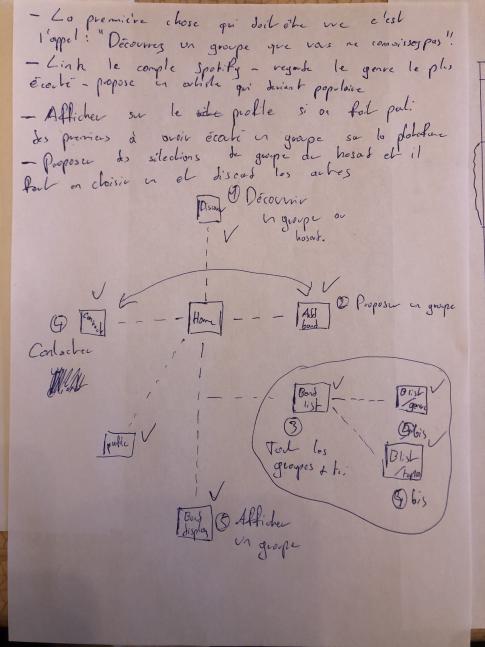 - La première chose qui doit être vue c'est
l'appel : "Découvrez un groupe que vous ne connaissez pas"!
- Link le compte Spotify - regarde le genre le plus
écouté - propose un artiste qui devient populaire
- Afficher sur le profile si on fait parti
des premiers à avoir écouté un groupe sur la plateforme
- Proposer des sélections de groupe du hasard et il
faut en choisir un et discard les autres
① Découvrir
un groupe au
hasard.
④
Home
Add
band
② Proposer un groupe
Contacter
public
Band
list
③
Tout les
groupes + tri
Blist
/genre
bis
Blist
bis
Band
display
⑤ Afficher
un groupe